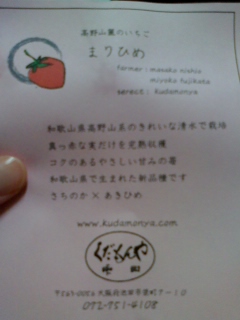 高野山麓のいちご
まりひめ
farmer : masako nishio
miyoko fujikata
serect : kudamonya
和歌山県高野山系のきれいな清水で栽培
真っ赤な実だけを完熟収穫
コクのあるやさしい甘みの苺
和歌山県で生まれた新品種です
さちのか×あきひめ
www.kudamonya.com
くだもんや
〒563-0056 大阪府池田市栄町7-10
072-751-4108